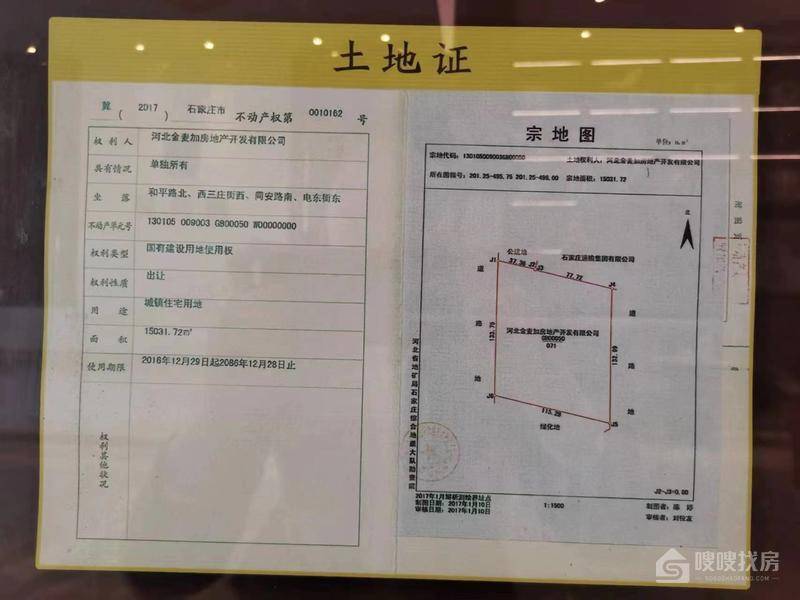 土地证
冀（2017）石家庄市不动产权第0010162号
权利人 河北金麦加房地产开发有限公司
共有情况 单独所有
坐落 和平路北、西三庄街西、同安路南、电东街东
不动产单元号 130105 009003 GB00050 W00000000
权利类型 国有建设用地使用权
权利性质 出让
用途 城镇住宅用地
面积 15031.72㎡
使用期限 2016年12月29日起2086年12月28日止
权利其他状况
宗地图
单位：m、m²
宗地代码：130105009003GB00050 土地权利人：河北金麦加房地产开发有限公司
所在图幅号：201.25-495.75 201.25-496.00 宗地面积：15031.72
北
公建地
石家庄运输集团有限公司
J1 37.36 J2 J3 77.72 J4
道路
133.75
河北金麦加房地产开发有限公司
GB00050
071
道路
地
地
J6 115.29 J5
绿化地
河北省地矿局石家庄综合地质大队勘查院
J2-J3=0.00
2017年1月解析测绘界址点
制图日期：2017年1月10日
审核日期：2017年1月10日
1:1500
制图者：陈婷
审核者：刘俊友
嗖嗖找房
SOUSOUZHAOFANG.COM